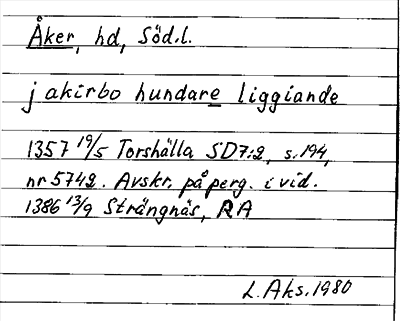 Åker, hd, Södl.
j akirbo hundare liggiande
1357 19/5 Torshälla SD7:2, s. 194,
nr 5742. Avskr. på perg. i vid.
1386 13/9 Strängnäs, RA
L. Aks. 1980